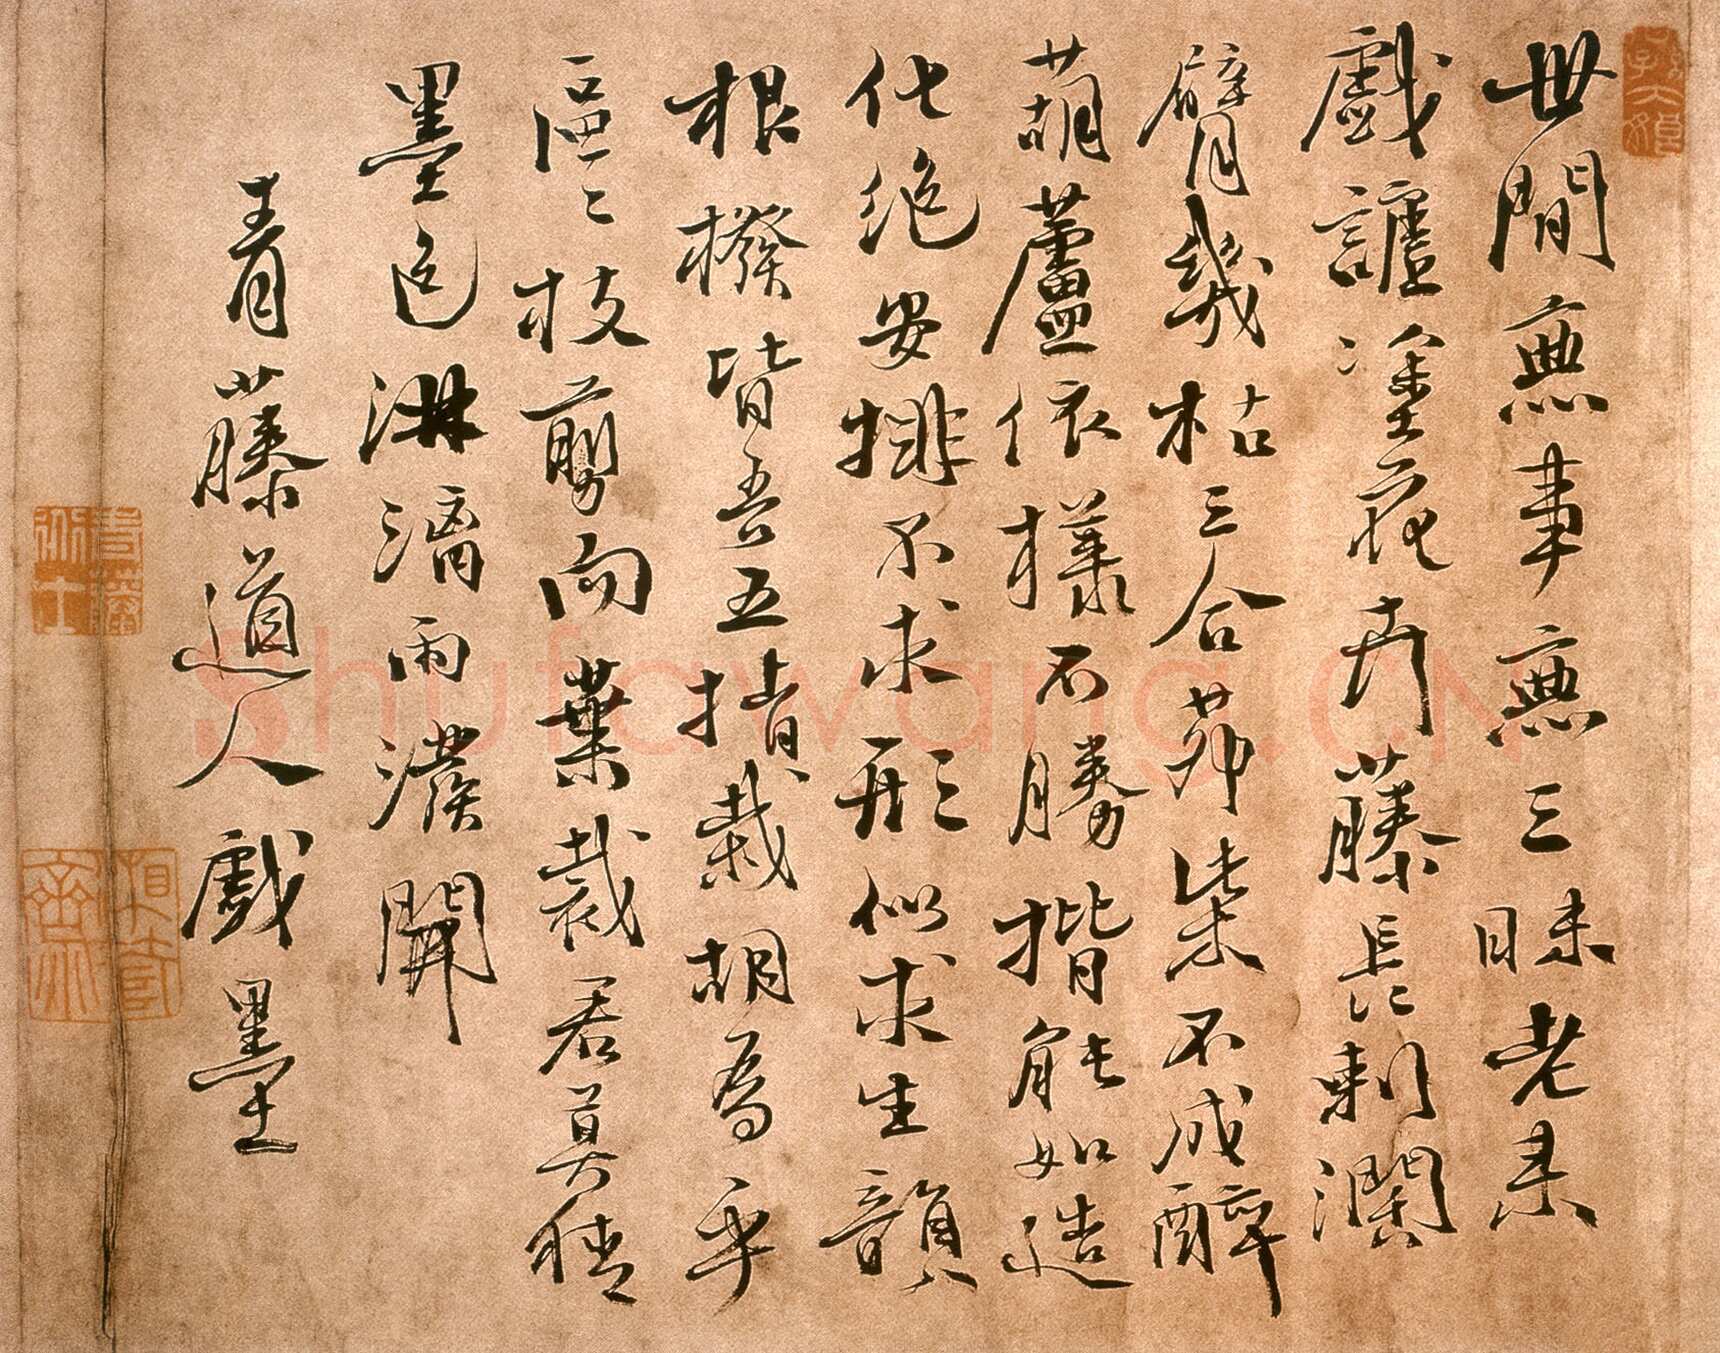 世間無事無三昧老来
戲謔塗花卉藤長刺闊
臂幾枯三合茅柴不成醉
葫蘆依樣不勝揩能如造
化絶安排不求形似求生韻
根撥皆吾五指栽胡為乎
區二枝剪向葉裁君莫猜
墨色淋漓雨潑開
青藤道人戲墨
Shufawang.CN